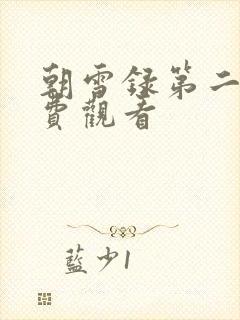 朝雪録第二
費觀看
藍少1